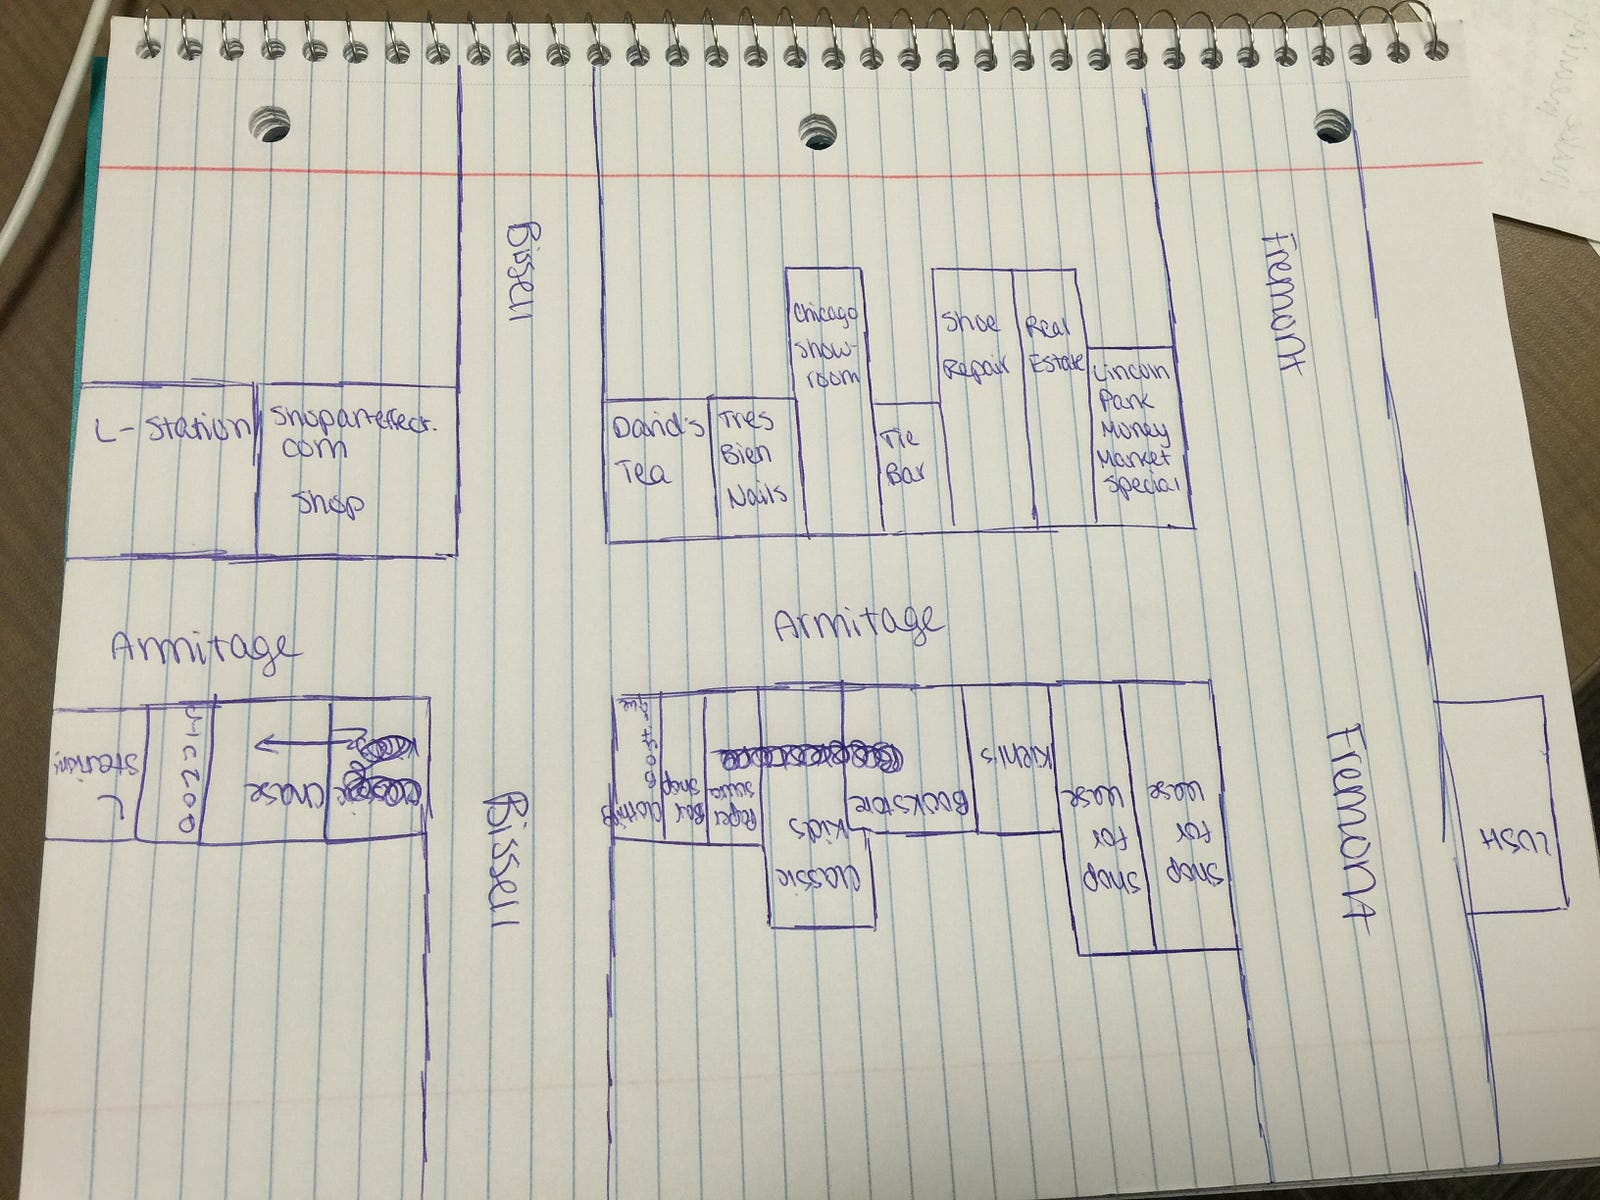 Bissell
Fremont
L-Station
Shoparteffect.
com
Shop
David's
Tea
Tres
Bien
Nails
Chicago
Show-
room
Tie
Bar
Shoe
Repair
Real
Estate
Lincoln
Park
Money
Market
Special
Armitage
Armitage
L
Station
Chase
Clothing
Bar
Shop
Paper
Shop
Classic
Kids
Bookstore
Kiehl's
Shop
for
Lease
Shop
for
Lease
Bissell
Fremont
LUSH